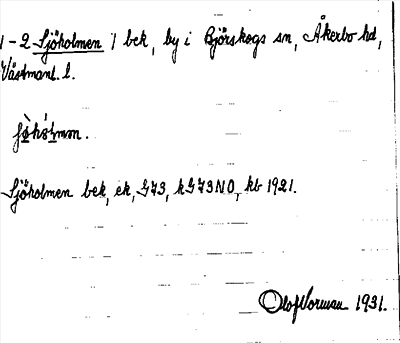 1-2 Sjöholmen / bek, by i Björskogs sn, Åkerbo hd,
Västmanl. l.
Sjöholmen bek, ek, G73, kG73NO, kb 1921.
Olof Norman 1931.